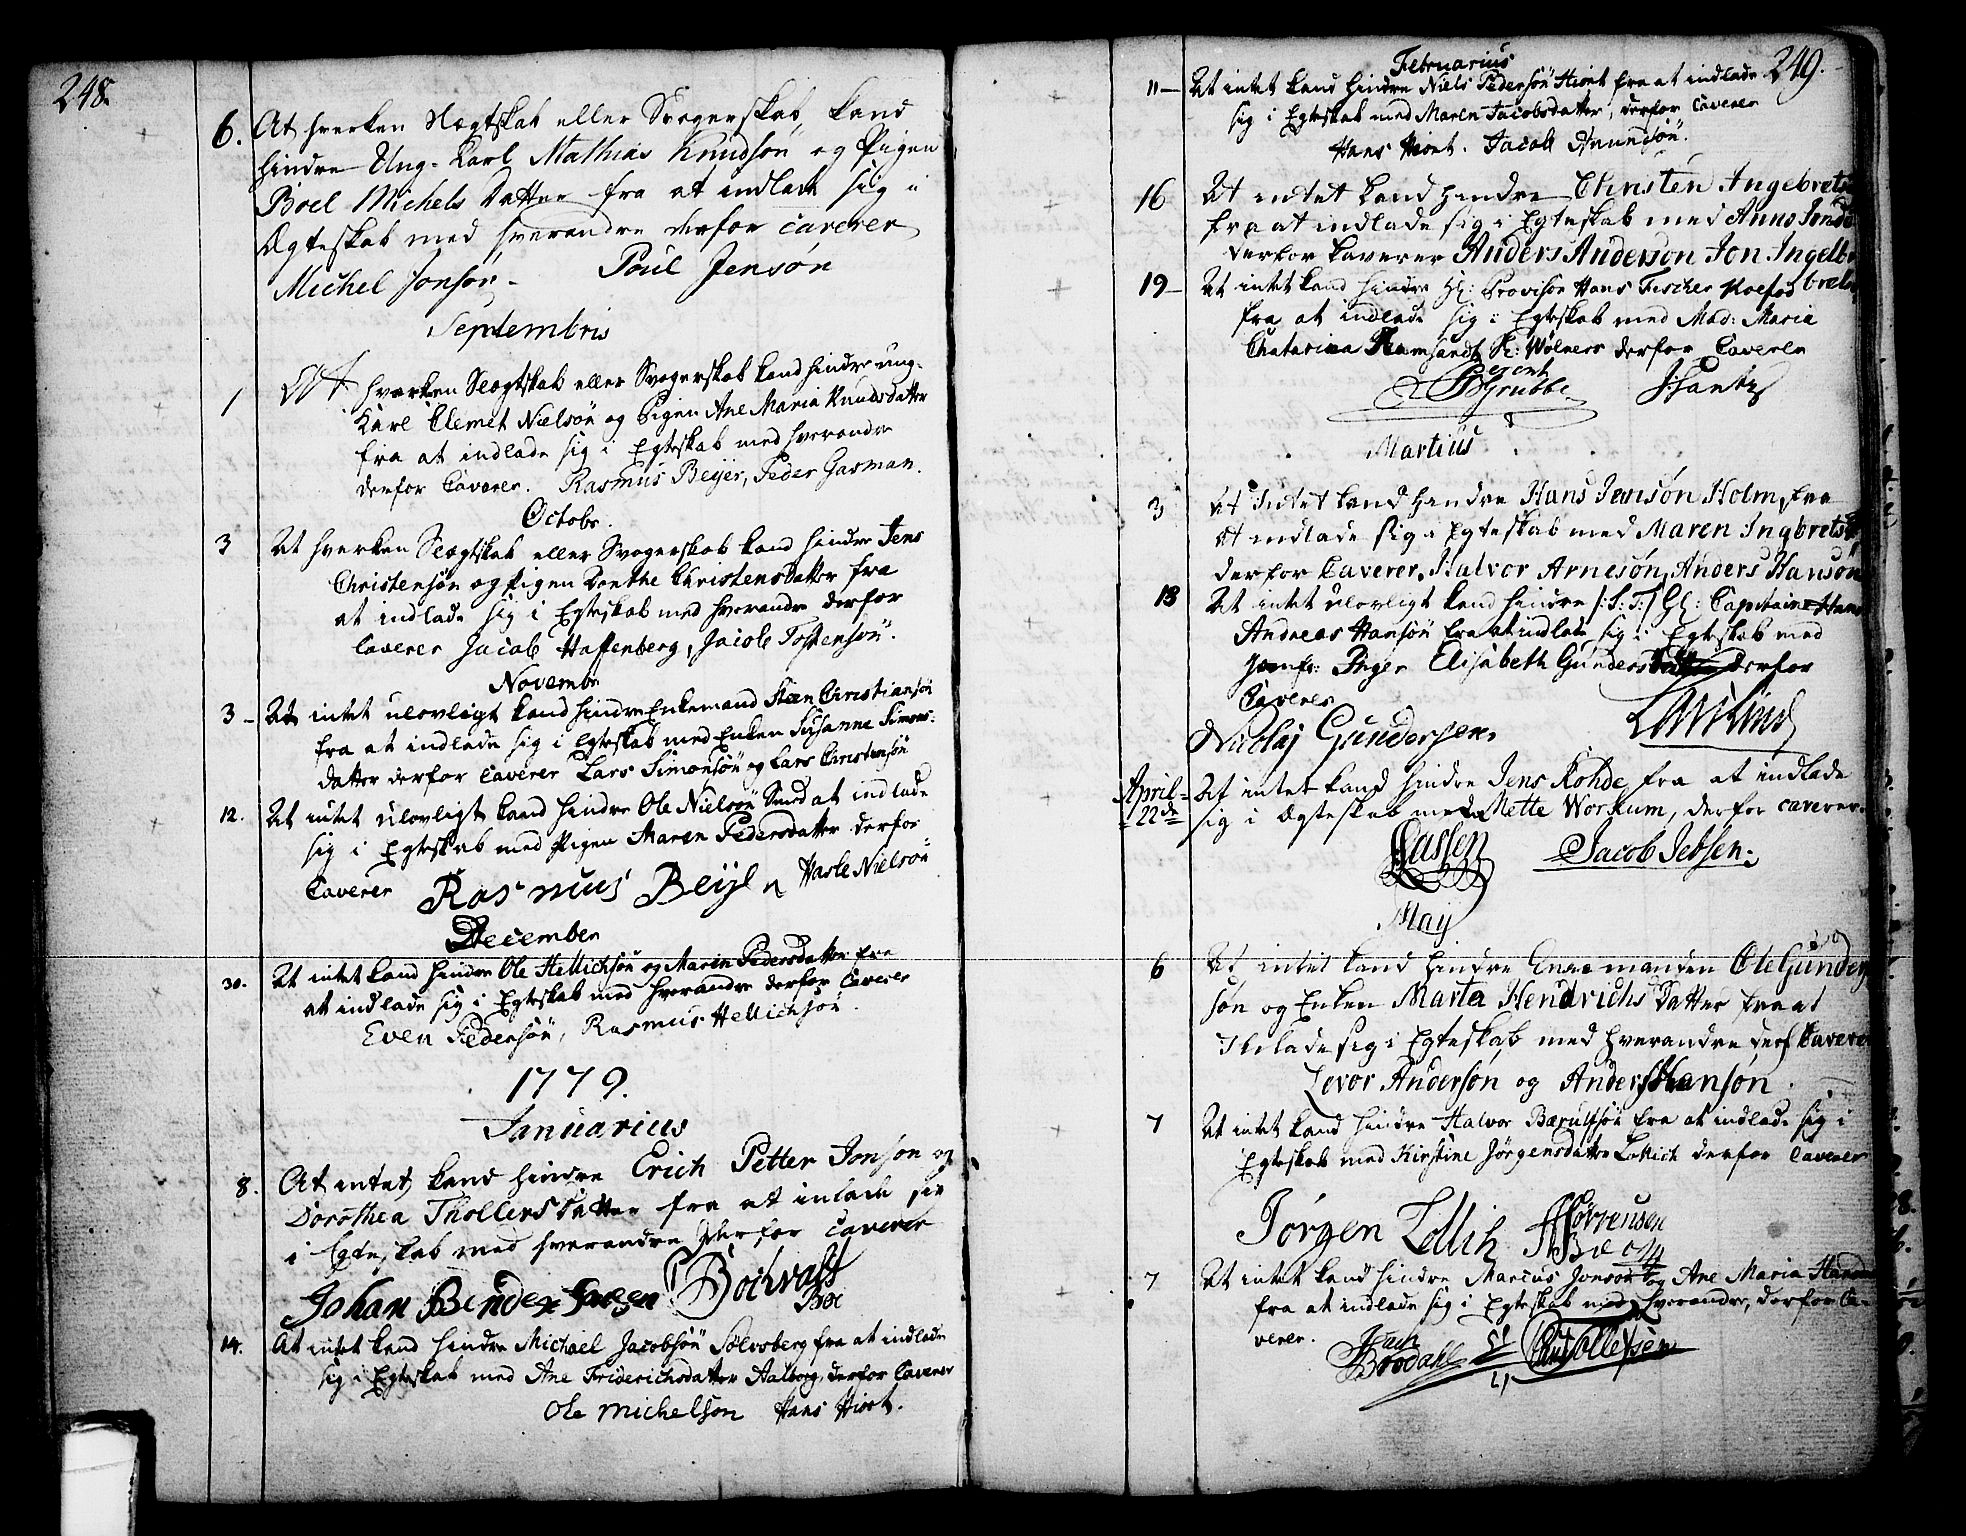 248.
6. At hverken Slægtskab eller Svogerskab kand
hindre Ung-Karl Mathias Knudsøn og Pigen
Boel Michels Datter fra at indlade sig i
Ægteskab med hverandre derfor caverer
Michel Jonsøn. Poul Jensøn
Septembris
1 At hverken Slægtskab eller Svogerskab kand hindre ung-
Karl Clemet Nielsøn og Pigen Ane Maria Knudsdatter
fra at indlade sig i Egteskab med hverandre
derfor Caverer. Rasmus Beijer, Peder Gasman.
Octobr.
3 At hverken Slægtskab eller Svogerskab kand hindre Jens
Christensøn og Pigen Dorthe Christensdatter fra
at indlade sig i Egteskab med hverandre derfor
Caverer Jacob Haffenberg, Jacob Tostensøn.
Novembr
3 – At intet ulovligt kand hindre Enkemand Steen Christiansøn
fra at indlade sig i Egteskab med Enken Susanne Simons-
datter derfor Caverer Lars Simonsøn og Lars Christensøn
12. At intet ulovligt kand hindre Ole Nielsøn Smed at indlade
sig i Egteskab med Pigen Maren Pedersdatter derfor
Caverer Rasmus Beijer Hasle Nielsøn
December
30. At intet kand hindre Ole Hellichsøn og Maren Pedersdatter fra
at indlade sig i Egteskab med hverandre derfor Caverer
Even Pedersøn, Rasmus Hellichsøn.
1779.
Januarius
8. At intet kand hindre Erich Petter Jonsøn og
Dorothea Thollers Datter fra at inlade sig
i Egteskab med hverandre derfor caverer
Johan Bender
14. At intet kand hindre Michael Jacobsøn Sølvsberg fra at indlade
sig i Egteskab med Ane Friderichsdatter Aalborg, derfor Caverer
Ole Michelsøn Hans Hiort.
249.
Februarius
11 – At intet kand hindre Niels Pedersøn Hiort fra at indlade
sig i Egteskab med Maren Jacobsdatter, derfor Caverer
Hans Hiort. Jacob
16 At intet kand hindre Christen Ingebrets
fra at indlade sig i Egteskab med Anne
derfor Caverer Anders Anderson Jon Ingelb
19 – At intet kand hindre Hr: Provisor Hans Fischer Koefod brets
fra at indlade sig i Egteskab med Mad: Maria
Chatarina Ramsandt Sl: Wølners derfor Caverer
Grubbe
Martius
3 At Intet kand hindre Hans Jensøn Holm, fra
at indlade sig i Egteskab med Maren Ingbrets
derfor Caverer, Halvor Arnesøn, Anders Hansøn
13 At intet ulovligt kand hindre /:S:T:/ Hr: Capitain Hans
Andreas Hansøn fra at indlade sig i Egteskab med
Jomfr: Inger Elisabeth Gunders derfor
Caverer
Nicolaj Gundersen.
April At intet kand hindre Jens Rohde fra at indlade
22de sig i Ægteskab med Mette Workum, derfor caverer
Cassen Jacob Jebsen.
Maij
6 At intet kand hindre Enkemanden Ole Gunder
søn og Enken Marta Hendrichs Datter fra at
Ihlade sig i Egteskab med hverandre derf Caverer
Levor Andersøn og Anders Hansøn.
7 At intet kand hindre Halvor Børulfsøn fra at indlade sig i
Egteskab med Kirstine Jørgensdatter Lollich derfor Caverer
Jørgen Lollich Sørrensen
7 At intet kand hindre Marcus Jonsøn og Ane Maria
fra at indlade sig i Egteskab med hverandre, derfor Ca-
verer. Brodahl Tollefsen